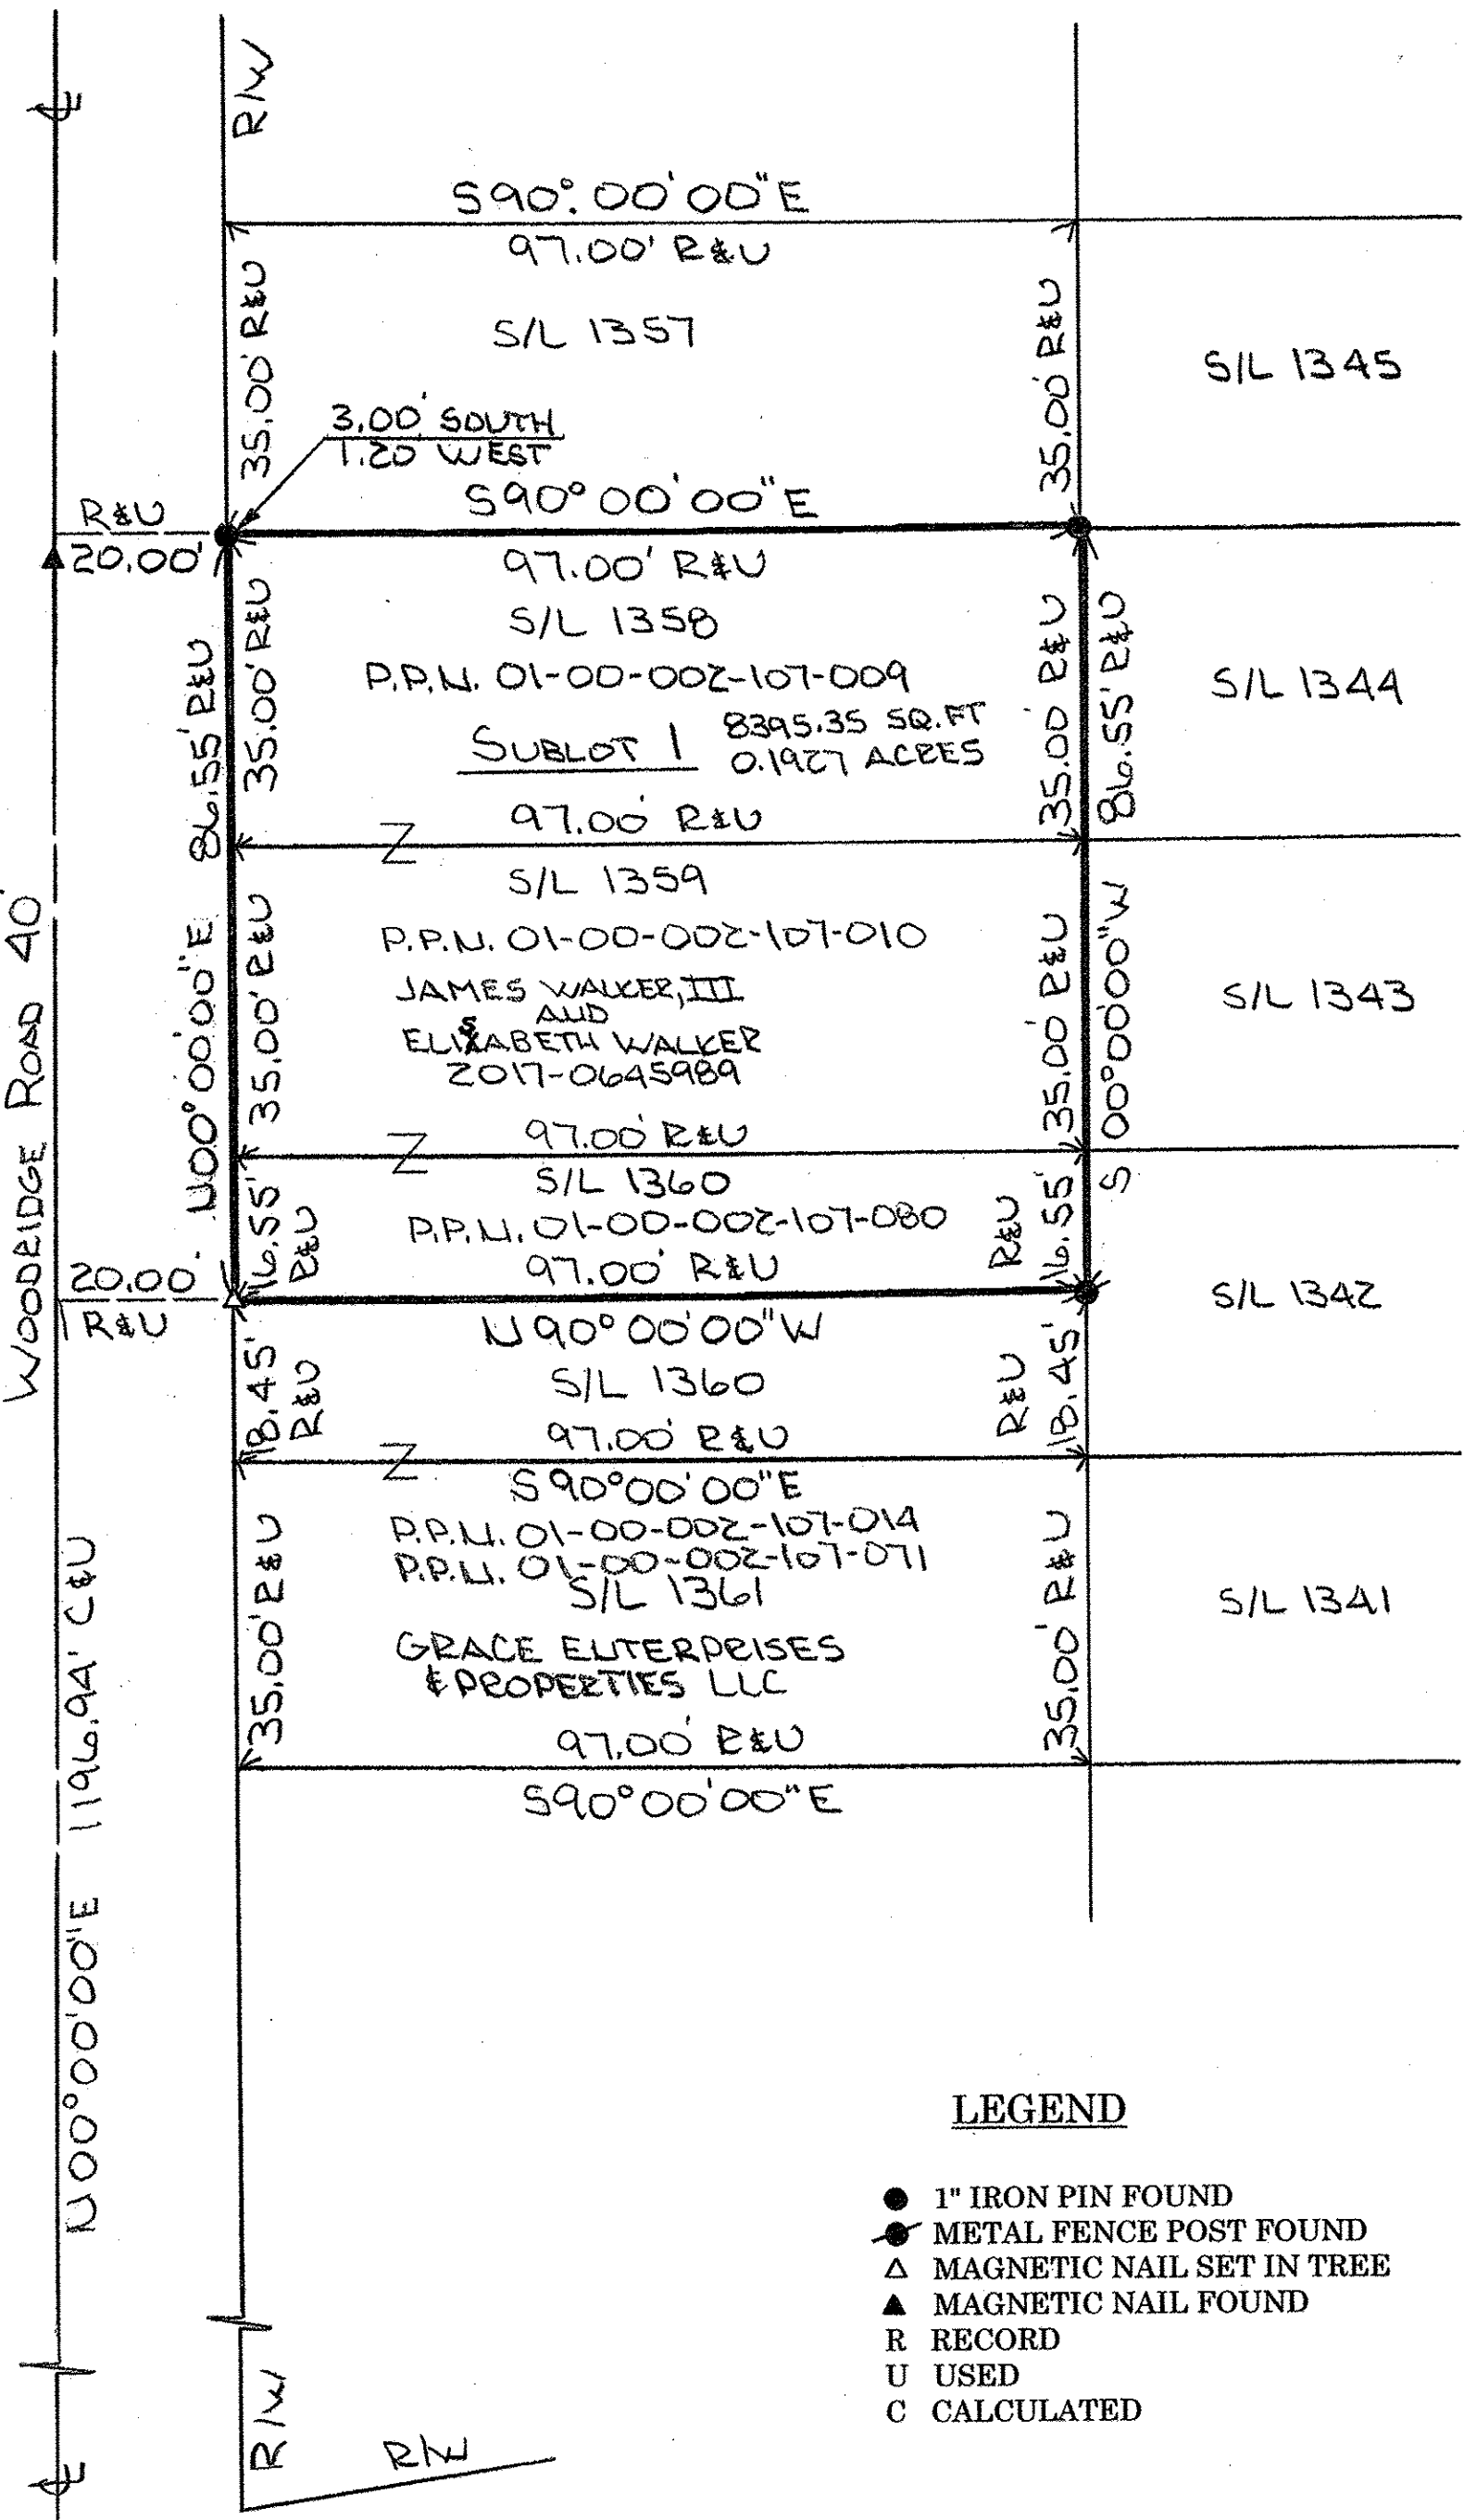 R/W
S90°.00'00"E
97.00' R&U
35.00' R&U
S/L 1357
35.00' R&U
S/L 1345
3.00' SOUTH
1.20 WEST
S90°00'00"E
R&U
20.00'
97.00' R&U
S/L 1358
P.P.N. 01-00-002-107-009
SUBLOT 1
8395.35 SQ.FT
0.1927 ACRES
86.55' R&U
35.00' R&U
35.00 R&U
86.55' R&U
S/L 1344
97.00' R&U
Z
S/L 1359
P.P.N. 01-00-002-107-010
JAMES WALKER, III
AND
ELISABETH WALKER
2017-0645989
N00°00'00"E
35.00' R&U
35.00' R&U
S 00°00'00"W
S/L 1343
WOODRIDGE ROAD 40'
97.00' R&U
Z
S/L 1360
P.P.N. 01-00-002-107-080
97.00' R&U
16.55'
R&U
R&U
16.55'
20.00'
R&U
N90°00'00"W
S/L 1342
S/L 1360
18.45'
R&U
R&U
18.45'
97.00' R&U
Z
S90°00'00"E
P.P.N. 01-00-002-107-014
P.P.N. 01-00-002-107-071
S/L 1361
GRACE ENTERPRISES
& PROPERTIES LLC
35.00' R&U
35.00' R&U
S/L 1341
97.00' R&U
S90°00'00"E
N00°00'00"E 1196.94' C&U
R/W
R/W
LEGEND
1" IRON PIN FOUND
METAL FENCE POST FOUND
MAGNETIC NAIL SET IN TREE
MAGNETIC NAIL FOUND
R RECORD
U USED
C CALCULATED